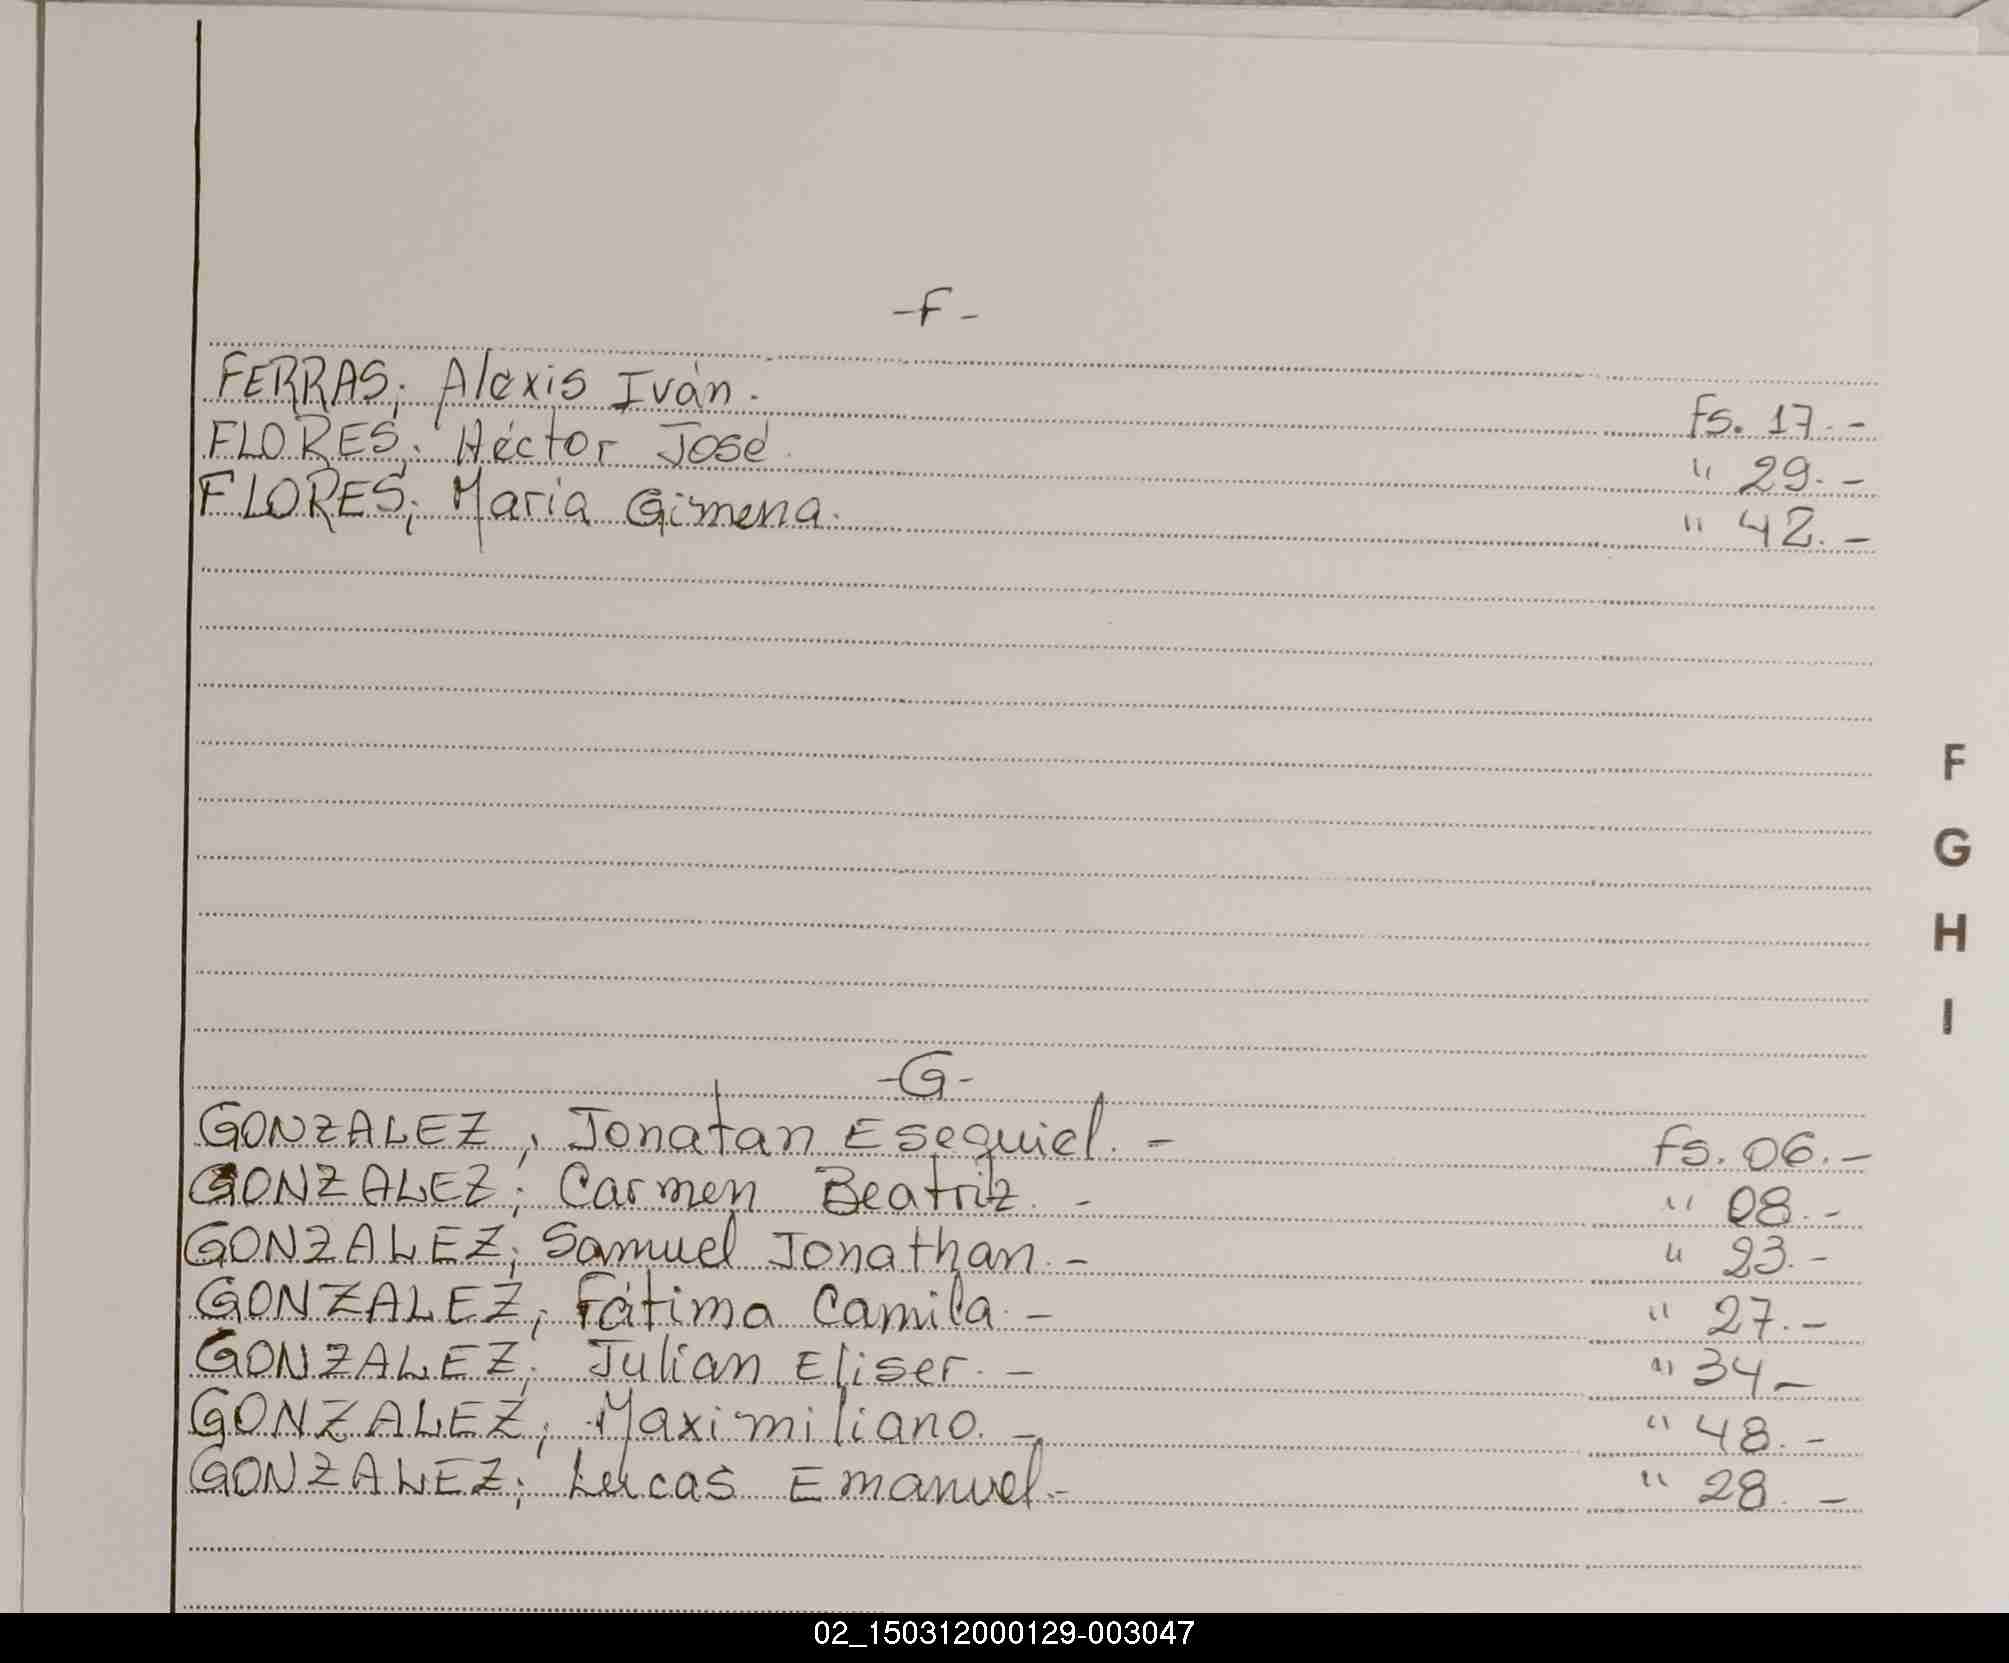 -F-
FERRAS; Alexis Iván. Fs. 17.-
FLORES; Héctor José. " 29.-
FLORES; Maria Gimena. " 42.-
F
G
H
I
-G-
GONZALEZ, Jonatan Esequiel.- Fs. 06.-
GONZALEZ; Carmen Beatriz.- " 08.-
GONZALEZ; Samuel Jonathan.- " 23.-
GONZALEZ; Fátima Camila.- " 27.-
GONZALEZ; Julian Eliser.- " 34-
GONZALEZ; Maximiliano.- " 48.-
GONZALEZ; Lucas Emanuel.- " 28.-
02_150312000129-003047